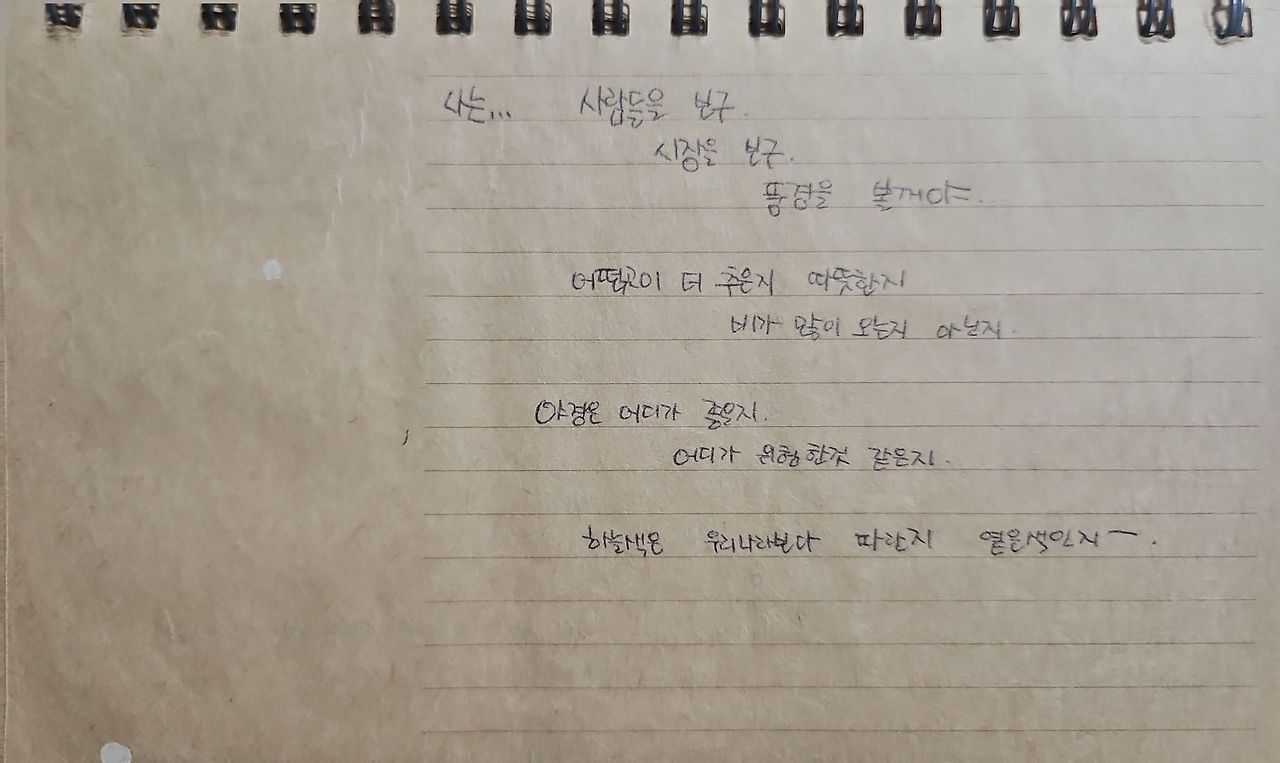 나는... 사람들을 보구.
시장을 보구.
풍경을 볼꺼야.
어떤곳이 더 추운지 따뜻한지
비가 많이 오는지 아닌지.
야경은 어디가 좋은지.
어디가 위험한것 같은지.
하늘색은 우리나라보다 파란지 옅은색인지ㅡ.